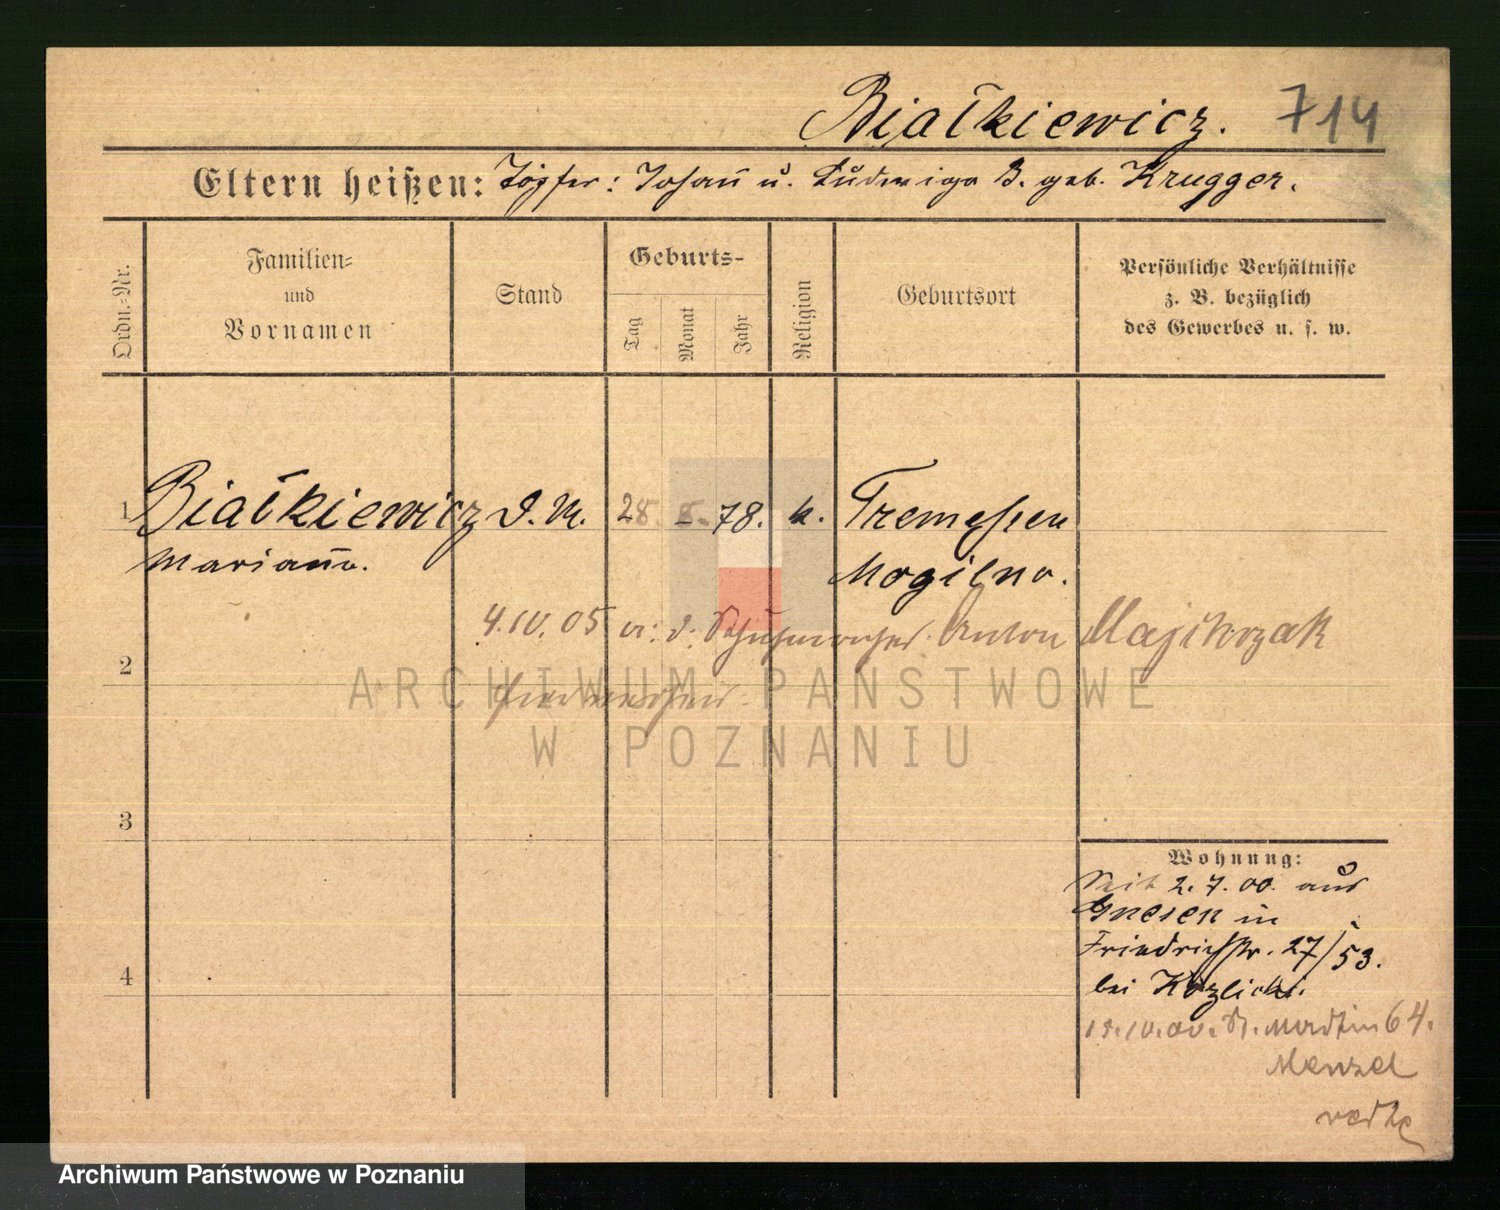 Białkiewicz. 714
Eltern heißen: Töpfer: Johañ u. Ludwiga B. geb. Krugger.
Ordn.-Nr.
Familien-
und
Vornamen
Stand
Geburts-
Tag
Monat
Jahr
Religion
Geburtsort
Persönliche Verhältnisse
z. B. bezüglich
des Gewerbes u. s. w.
1 Białkiewicz D. M. 28. 8. 78. k. Tremessen
Marianna. Mogilno.
4.IV.05 v. d. Schuhmacher Anton Majchrzak
2
ARCHIWUM PAŃSTWOWE
W POZNANIU
3
Wohnung:
Seit 2.7.00. aus
Gnesen in
Friedrichstr. 27/53.
4
bei
St. Martin 64.
Menzel
Archiwum Państwowe w Poznaniu